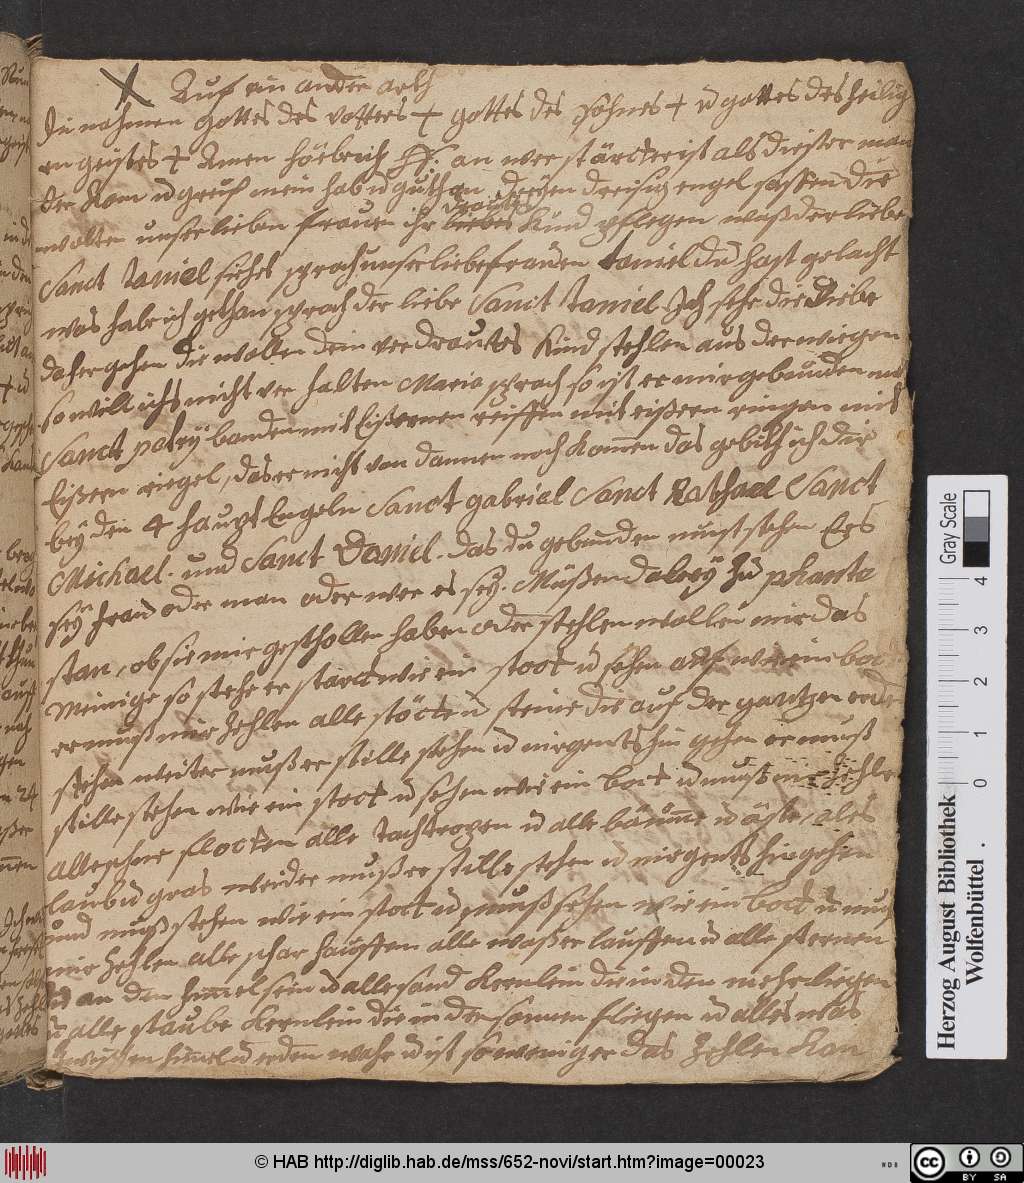 Auf ein ander arth
In nahmen gottes des vatters + gottes des Sohnes + ud gottes des heilig
en geistes + Amen an wer stärcker ist als diesser man
der kom ud greif mein hab ud guth an dreÿen dreisig engel sassen die
wolten unser lieben frauen ihr trautes Kind pflegen waß der liebe
Sanct Daniel siehet sprach unser liebe frauen Daniel du hast gelacht
was habe ich gethan sprach der liebe Sanct Daniel. Ich sehe die Diebe
daher gehen die wollen dein verdrauttes Kind stehlen aus der wiegen
so will ichs nicht ver halten Maria sprach so ist er mir gebunden mit
Sanct petrÿ banden mit Eißernen reiffen mit eißern ringen mit
Eißern riegel, das er nicht von dannen noch kommen das gebith ich dir
beÿ den 4 haupt Engeln Sanct gabriel Sanct Raphael Sanct
Michael. und Sanct Daniel. das du gebunden must stehen Es
seÿ frau oder man oder wer es seÿ. Müßen dabeÿ zu phanta
stan, ob sie mir gestohllen haben oder stehlen wollen mir das
Meinige so stehe er starck wie ein stock ud sehen auf wie ein bock
er muß mir zehlen alle stöcke ud steine die auf der gantzen erde
stehen weiter muß er stille stehen ud nirgents hin gehen er muß
stille stehen wie ein stock ud sehen wie ein bock ud muß mir zehlen
alle schne flocken alle tachtropen ud alle bäume ud äste, ales
laub ud gras weider muß er stille stehen ud nirgents hin gehen
und muß stehen wie ein stock ud muß sehen wie ein bock ud muß
mir zehlen alle schar hauffen alle waßer lauffen ud alle sternen
an den himel sein ud alle sand Kernlein die in den mehr liegen
ud alle staube Kernlein die in der sonnen fliegen ud alles was
zwischen himel ud erden wahr ud ist so weniger das zehlen kan
Herzog August Bibliothek
Wolfenbüttel
Gray Scale
0 1 2 3 4
© HAB http://diglib.hab.de/mss/652-novi/start.htm?image=00023
CC BY SA